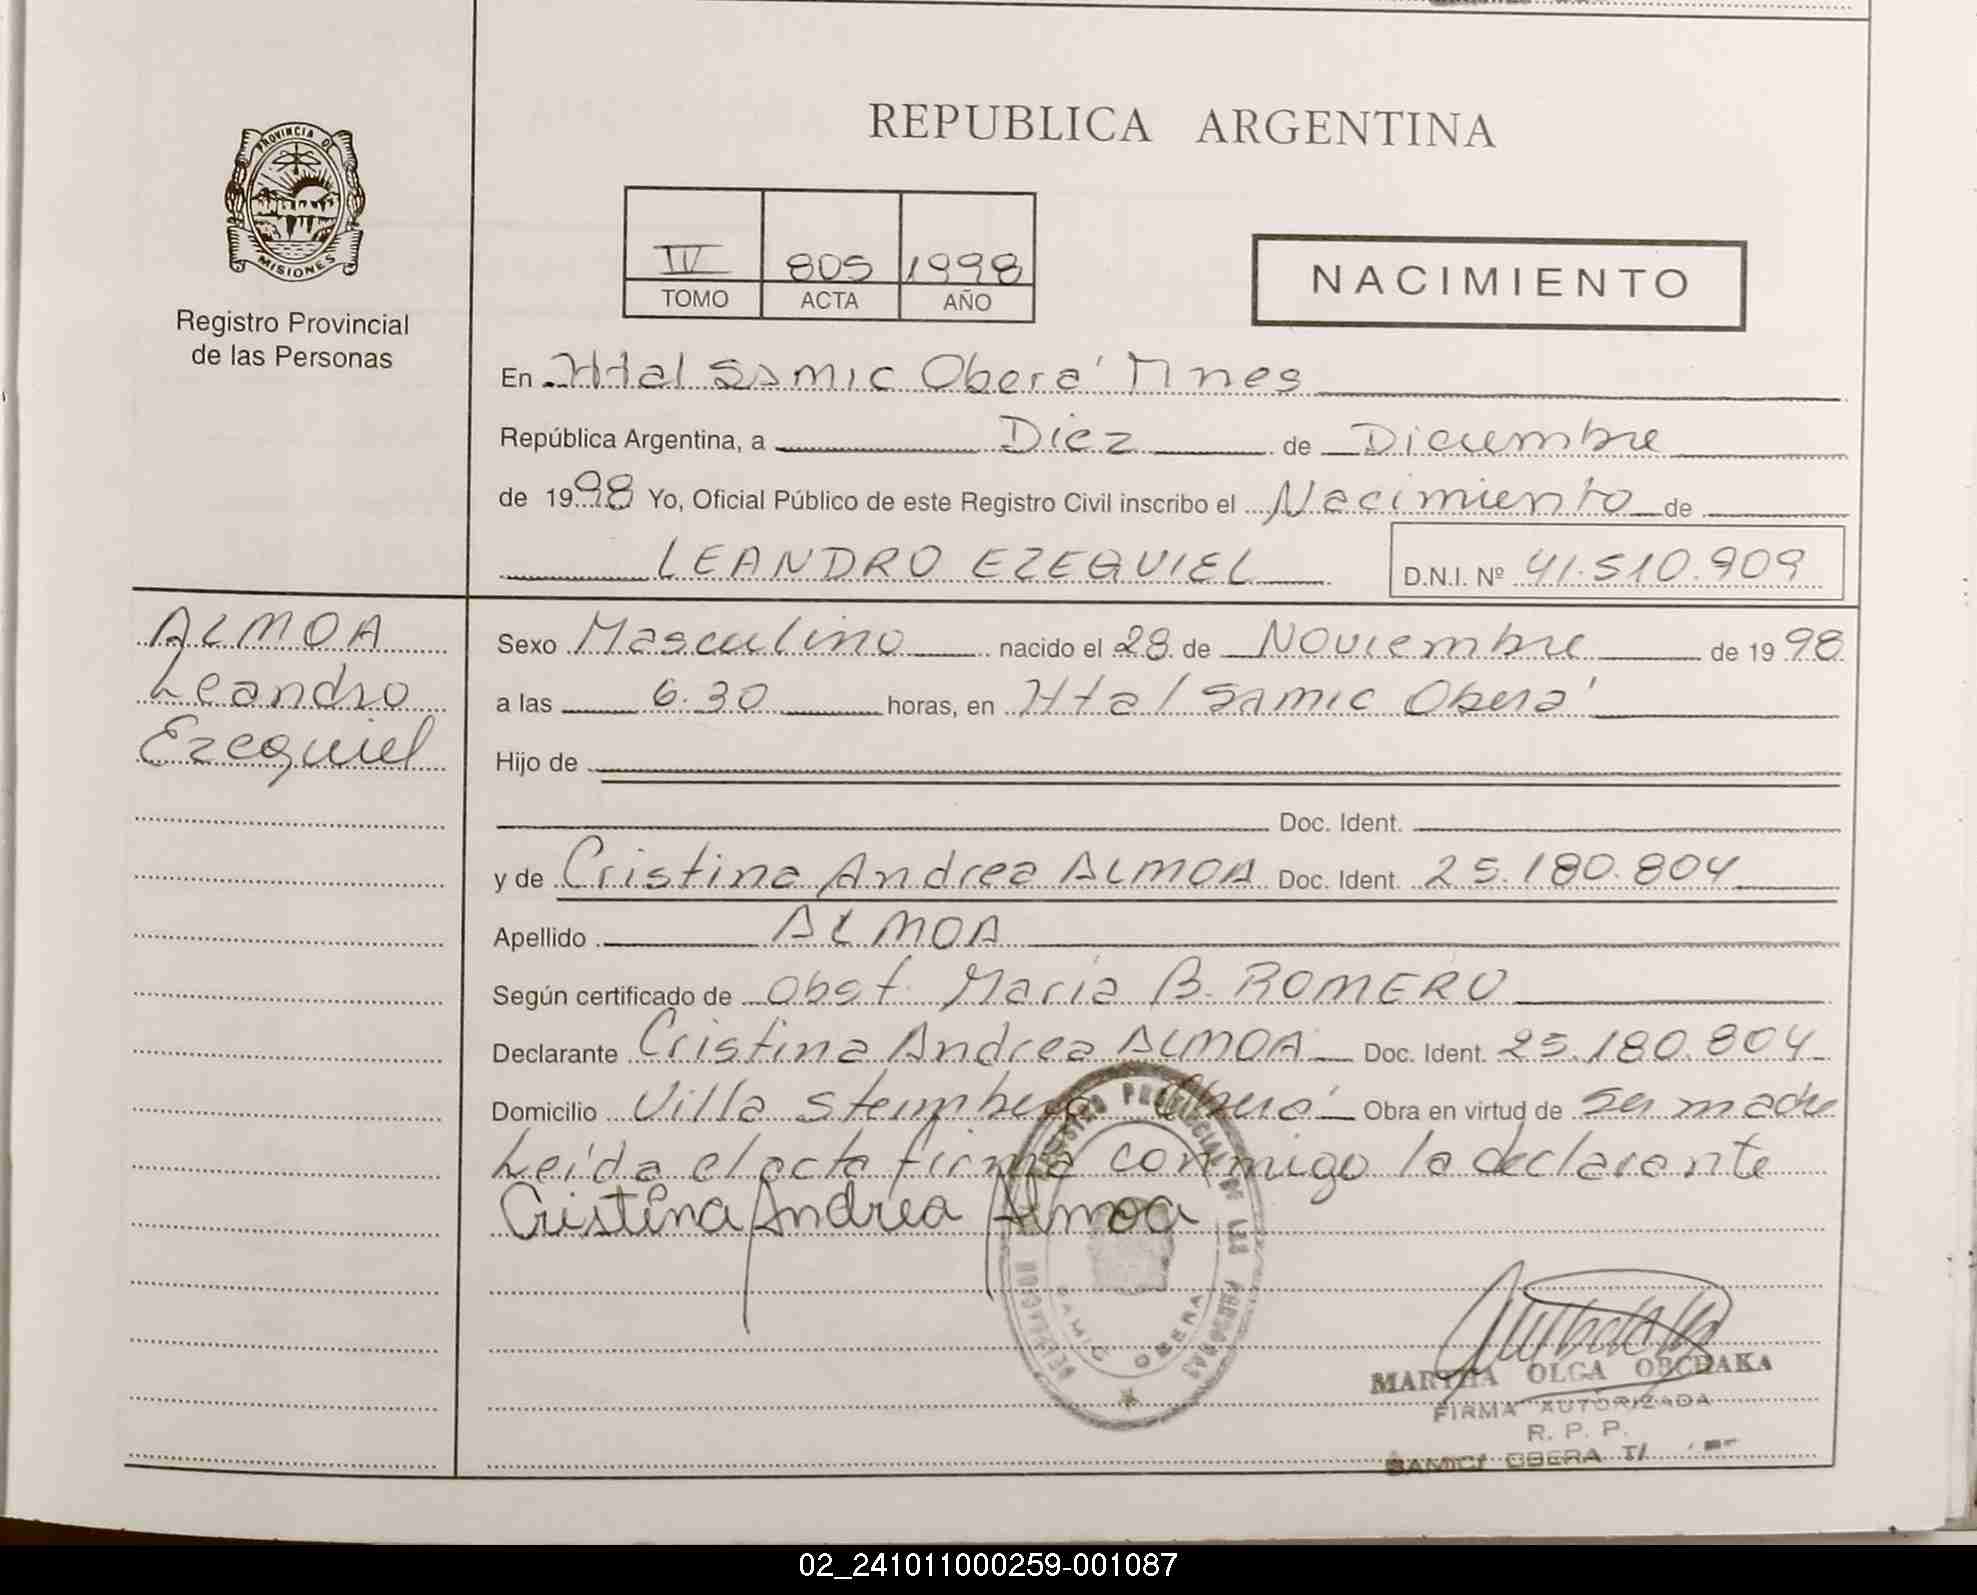 REPUBLICA ARGENTINA
PROVINCIA DE
MISIONES
Registro Provincial
de las Personas
IV 805 1998
TOMO ACTA AÑO
NACIMIENTO
En Htal Samic Oberá Mnes
República Argentina, a Diez de Diciembre
de 1998 Yo, Oficial Público de este Registro Civil inscribo el Nacimiento de
LEANDRO EZEQUIEL D.N.I. Nº 41.510.909
ALMOA
Leandro
Ezequiel
Sexo Masculino nacido el 28 de Noviembre de 1998
a las 6.30 horas, en Htal Samic Oberá
Hijo de
Doc. Ident.
y de Cristina Andrea ALMOA Doc. Ident. 25.180.804
Apellido ALMOA
Según certificado de Obst. María B. ROMERO
Declarante Cristina Andrea ALMOA Doc. Ident. 25.180.804
Domicilio Villa Oberá Obra en virtud de ser madre
Leída el acta firma conmigo la declarante
Cristina Andrea Almoa
REGISTRO PROVINCIAL DE LAS PERSONAS
DELEGACION
SAMIC OBERA
MARTHA OLGA OBCDAKA
FIRMA AUTORIZADA
R. P. P.
SAMIC OBERA
02_241011000259-001087